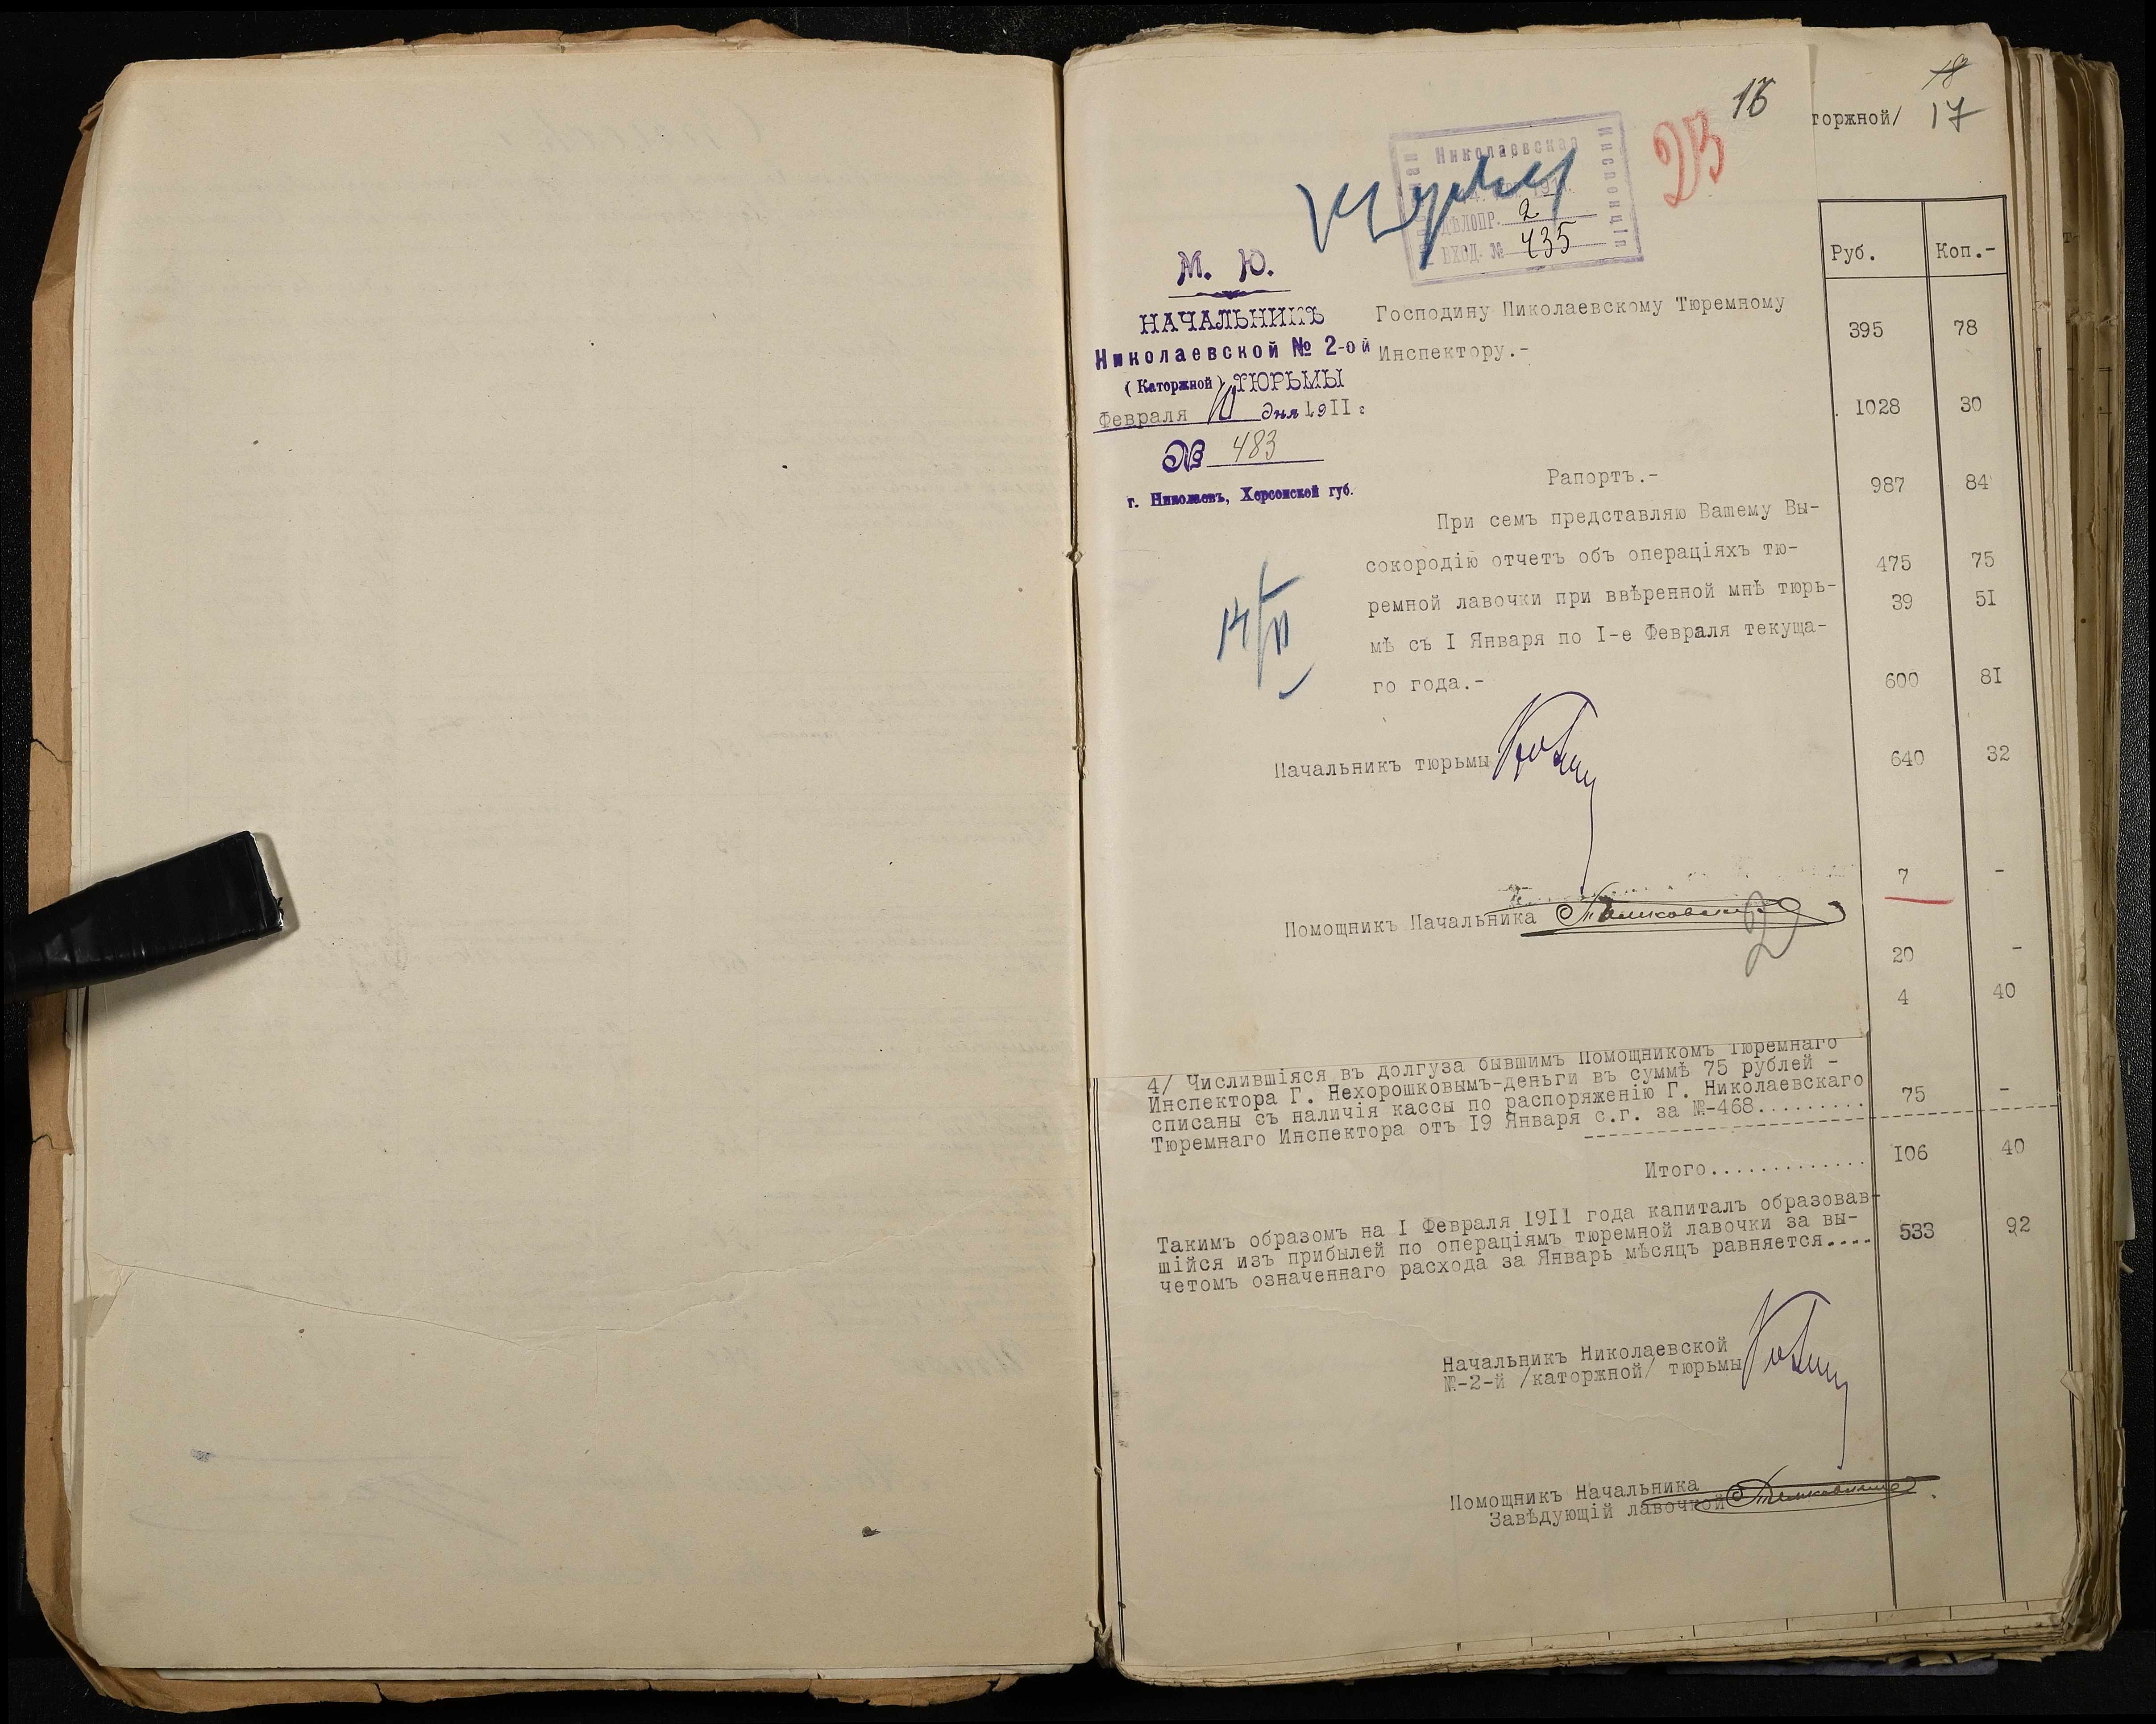 16
23
Николаевская
Инспекція
ДѢЛОПР. 2
ВХОД. № 435
М. Ю.
НАЧАЛЬНИКЪ
Николаевской № 2-ой
(Каторжной) ТЮРЬМЫ
Февраля 10 дня 1911 г
№ 483
г. Николаевъ, Херсонской губ.
Господину Николаевскому Тюремному
Инспектору.-
Рапортъ.-
При семъ представляю Вашему Вы-
сокородію отчетъ объ операціяхъ тю-
ремной лавочки при ввѣренной мнѣ тюрь-
мѣ съ I Января по I-е Февраля текуща-
го года.-
14/II
Начальникъ тюрьмы
Помощникъ Начальника
18
17
торжной/
Руб. Коп.-
395 78
1028 30
987 84
475 75
39 5I
600 8I
640 32
7 -
20 -
4 40
4/ Числившіяся въ долгуза бывшимъ Помощникомъ Тюремнаго
Инспектора Г. Нехорошковымъ-деньги въ суммѣ 75 рублей -
списаны съ наличія кассы по распоряженію Г. Николаевскаго
Тюремнаго Инспектора отъ I9 Января с.г. за №-468......... 75 -
Итого............. I06 40
Такимъ образомъ на I Февраля 1911 года капиталъ образовав-
шійся изъ прибылей по операціямъ тюремной лавочки за вы-
четомъ означеннаго расхода за Январь мѣсяцъ равняется.... 533 92
Начальникъ Николаевской
№-2-й /каторжной/ тюрьмы
Помощникъ Начальника
Завѣдующій лавочкой